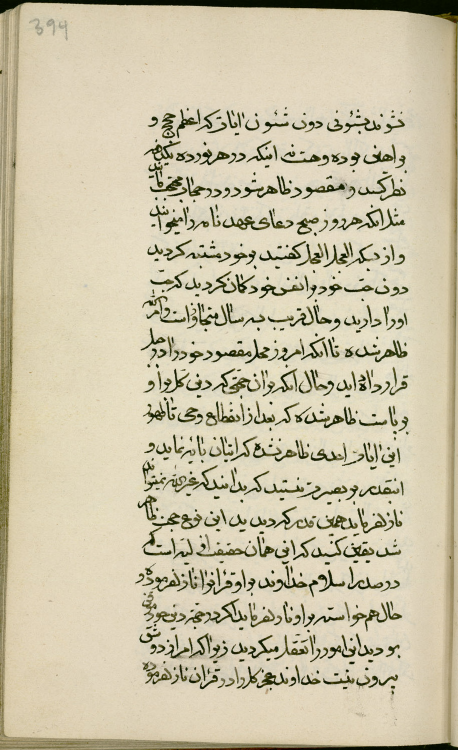 399
نشوند بشئونی دون شئون ایات که اعظم حجج و
براهین بوده و هست نه اینکه در هر ظهور ده
نظر کنند و مقصود ظاهر شود و در حجاب محتجب مانند
مثل انکه هر روز صبح دعای عهد نامه را میخوانید
و از بسکه العجل العجل گفتید بر خود مشتبه کردید
دون حب خود بر انفس خود گمان کردید که حب
او را دارید و حال قریب به سال متجاوز است که امر الله
ظاهر شده تا انکه امروز محل مقصود خود را در جبل
قرار داده اید و حال انکه بان حجتی که دین کل بر او
بر پاست ظاهر شده که بعد از انقطاع وحی تا ظهور
این ایات احدی ظاهر نشده که اتیان بایه نماید و
اینقدر بر بصیرت نیستید که بدانید که غیر الله نمیتواند
نازل فرماید همین قدر که دیدید این نوع حجت ظاهر
شد یقین کنید که این همان حقیقت اولیه است که
در صدر اسلام خداوند بر او قرانرا نازل فرموده و
حال هم خواسته بر او نازل فرماید اگر در حجت دین خود موقن
بودید این امور را تعقل میکردید زیرا که امر از دو شق
بیرون نیست خداوند عجز کل را در قران نازل فرموده